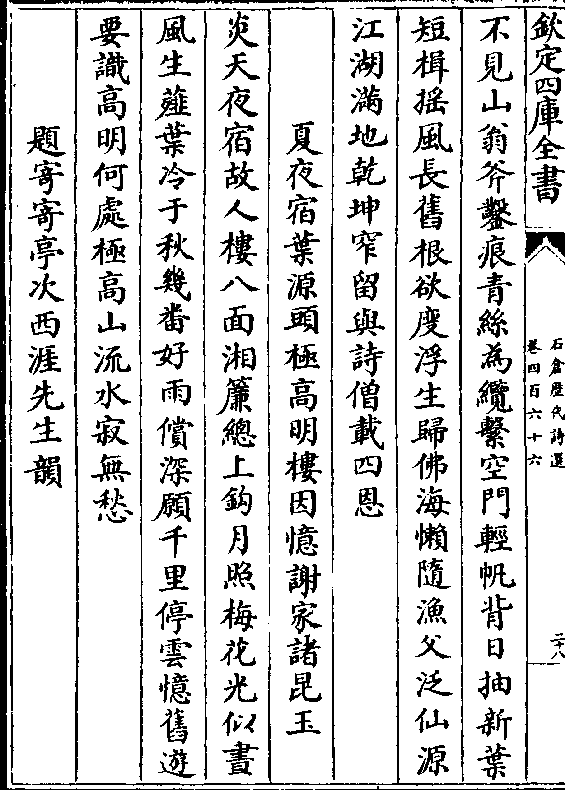 欽定四庫全書
石倉歷代詩選
卷四百六十六
二十八
不見山翁斧鑿痕青絲為纜繫空門輕帆背日抽新葉
短楫揺風長舊根欲度浮生歸佛海懶隨漁父泛仙源
江湖滿地乾坤窄留與詩僧載四恩
夏夜宿葉源頭極高明樓因憶謝家諸昆玉
炎天夜宿故人樓八面湘簾總上鈎月照梅花光似晝
風生薤葉冷于秋幾畨好雨償深願千里停雲憶舊遊
要識高明何處極高山流水寂無愁
題寄寄亭次西涯先生韻